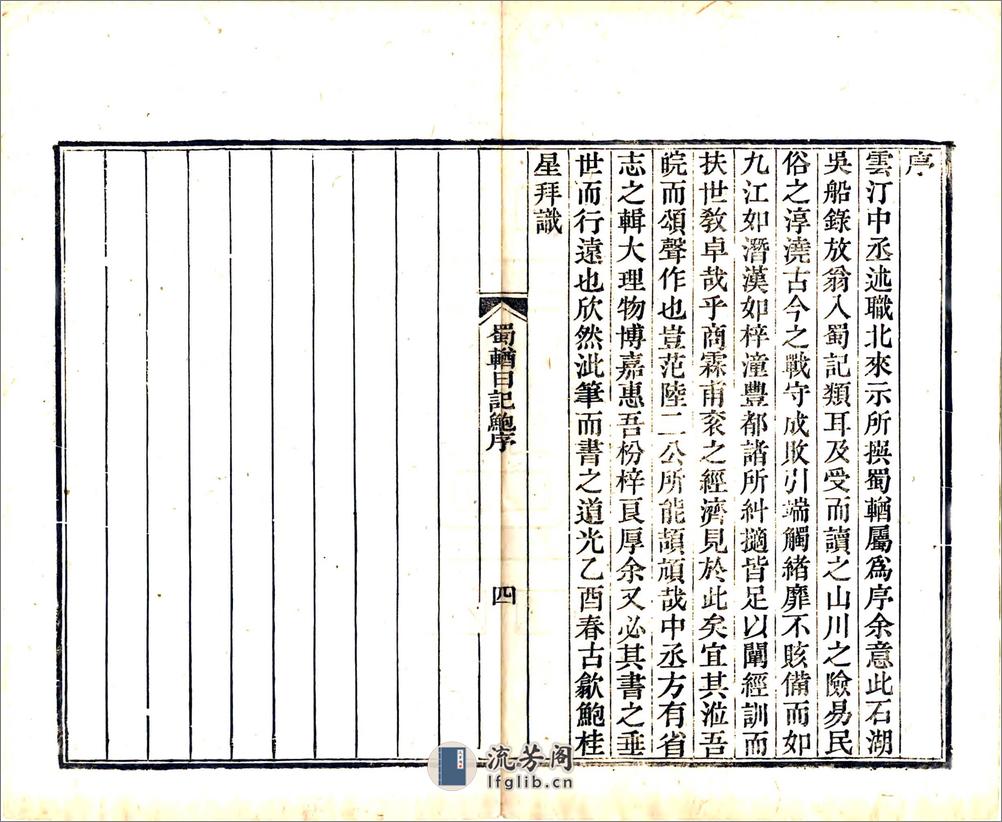 序
雲汀中丞述職北來示所撰蜀輶屬爲序余意此石湖
吳船錄放翁入蜀記類耳及受而讀之山川之險易民
俗之淳澆古今之戰守成敗引端觸緒靡不賅備而如
九江如潛漢如梓潼豐都諸所糾擿皆足以闡經訓而
扶世敎卓哉乎商霖甫衮之經濟見於此矣宜其涖吾
皖而頌聲作也豈范陸二公所能頡頏哉中丞方有省
志之輯大理物博嘉惠吾枌梓㫗厚余又必其書之垂
世而行遠也欣然泚筆而書之道光乙酉春古歙鮑桂
星拜識
蜀輶日記鮑序
四
流芳阁
lfglib.cn